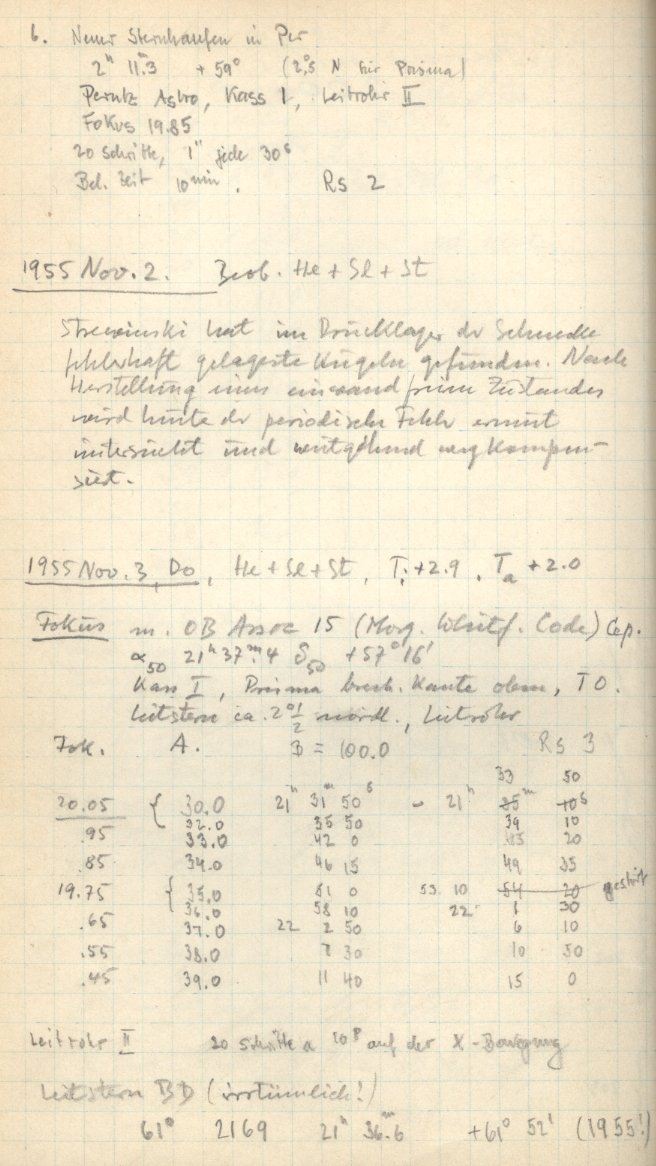 6. Neuer Sternhaufen in Per
2ʰ 11ᵐ.3 +59° (2°,5 N für Prisma)
Perutz Astro, Kass I, Leitrohr II
Fokus 19.85
20 Schritte, 1" jede 30ˢ
Bel. Zeit 10 min. Rs 2
1955 Nov. 2. Beob. He + Sl + St
Strewinski hat im Drucklager der Schnecke
fehlerhaft gelagerte Kugeln gefunden. Nach
Herstellung eines einwandfreien Zustandes
wird heute der periodische Fehler erneut
untersucht und weitgehend wegkompen-
siert.
1955 Nov. 3, Do, He + Sl + St, Tᵢ +2.9, Tₐ +2.0
Fokus m. OB Assoc 15 (Morg. Whitf. Code) Cep.
α₅₀ 21ʰ 37ᵐ.4 δ₅₀ +57° 16'
Kass I, Prisma brech. Kante oben, TO.
Leitstern ca. 2°½ nördl., Leitrohr
Fok. A. B = 100.0 Rs 3
33 50
20.05 { 30.0 21ʰ 31ᵐ 50ˢ – 21ʰ 35ᵐ 10ˢ
32.0 35 50 39 10
.95 33.0 42 0 45 20
.85 34.0 46 15 49 35
19.75 { 35.0 51 0 53 10 54 20 gestört
36.0 58 10 22 1 30
.65 37.0 22 2 50 6 10
.55 38.0 7 30 10 50
.45 39.0 11 40 15 0
Leitrohr II 20 Schritte a 10ᵖ auf der X-Bewegung
Leitstern BD (irrtümlich!)
61° 2169 21ʰ 36ᵐ.6 +61° 52' (1955!)